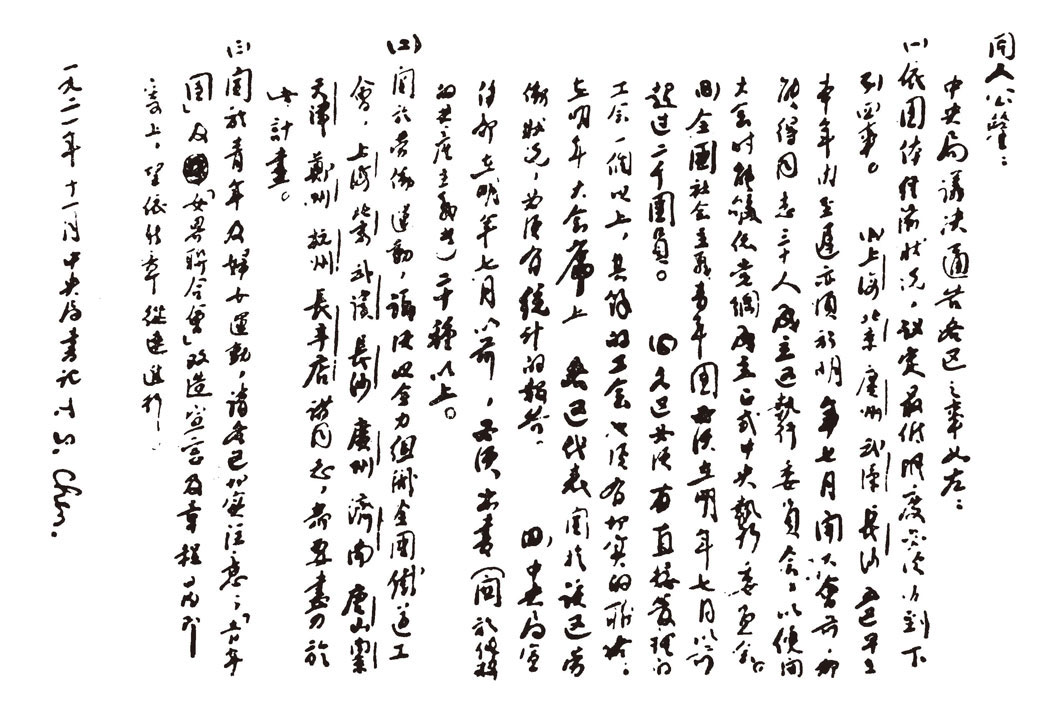 同人公鑒：
中央局議決通告各區之事如左：
(一)依團体經濟狀況，議定最低限度必須办到下
列四事。(A)上海 北京 廣州 武漢 長沙 五區早在
本年內至遲亦須於明年七月開大會前，都
能得同志三十人成立區執行委員會，以便開
大會時能夠依党綱成立正式中央執行委員会。
(B)全國社会主義青年團必須在明年七月以前
超过二千團員。(C)各區必須有直接管理的
工会一個以上，其餘的工会也須有切實的联絡；
在明年大会席上 各區代表関於該區勞
働狀況，必須有統計的報告。(D)中央局宣
傳部在明年七月以前，必須出書(関於純粹
的共產主義者)二十種以上。
(二)関於勞働運動，議決以全力組織全國鐵道工
會，上海 北京 武漢 長沙 廣州 濟南 唐山 南京
天津 鄭州 杭州 長辛店 諸同志，都要盡力於
此計畫。
(三)関於青年及婦女運動，請各區切實注意；「青年
團」及「女界聯合會」改造宣言及章程日內即
寄上，望依新章從速進行。
一九二一年十一月 中央局書記 T. S. Chen.